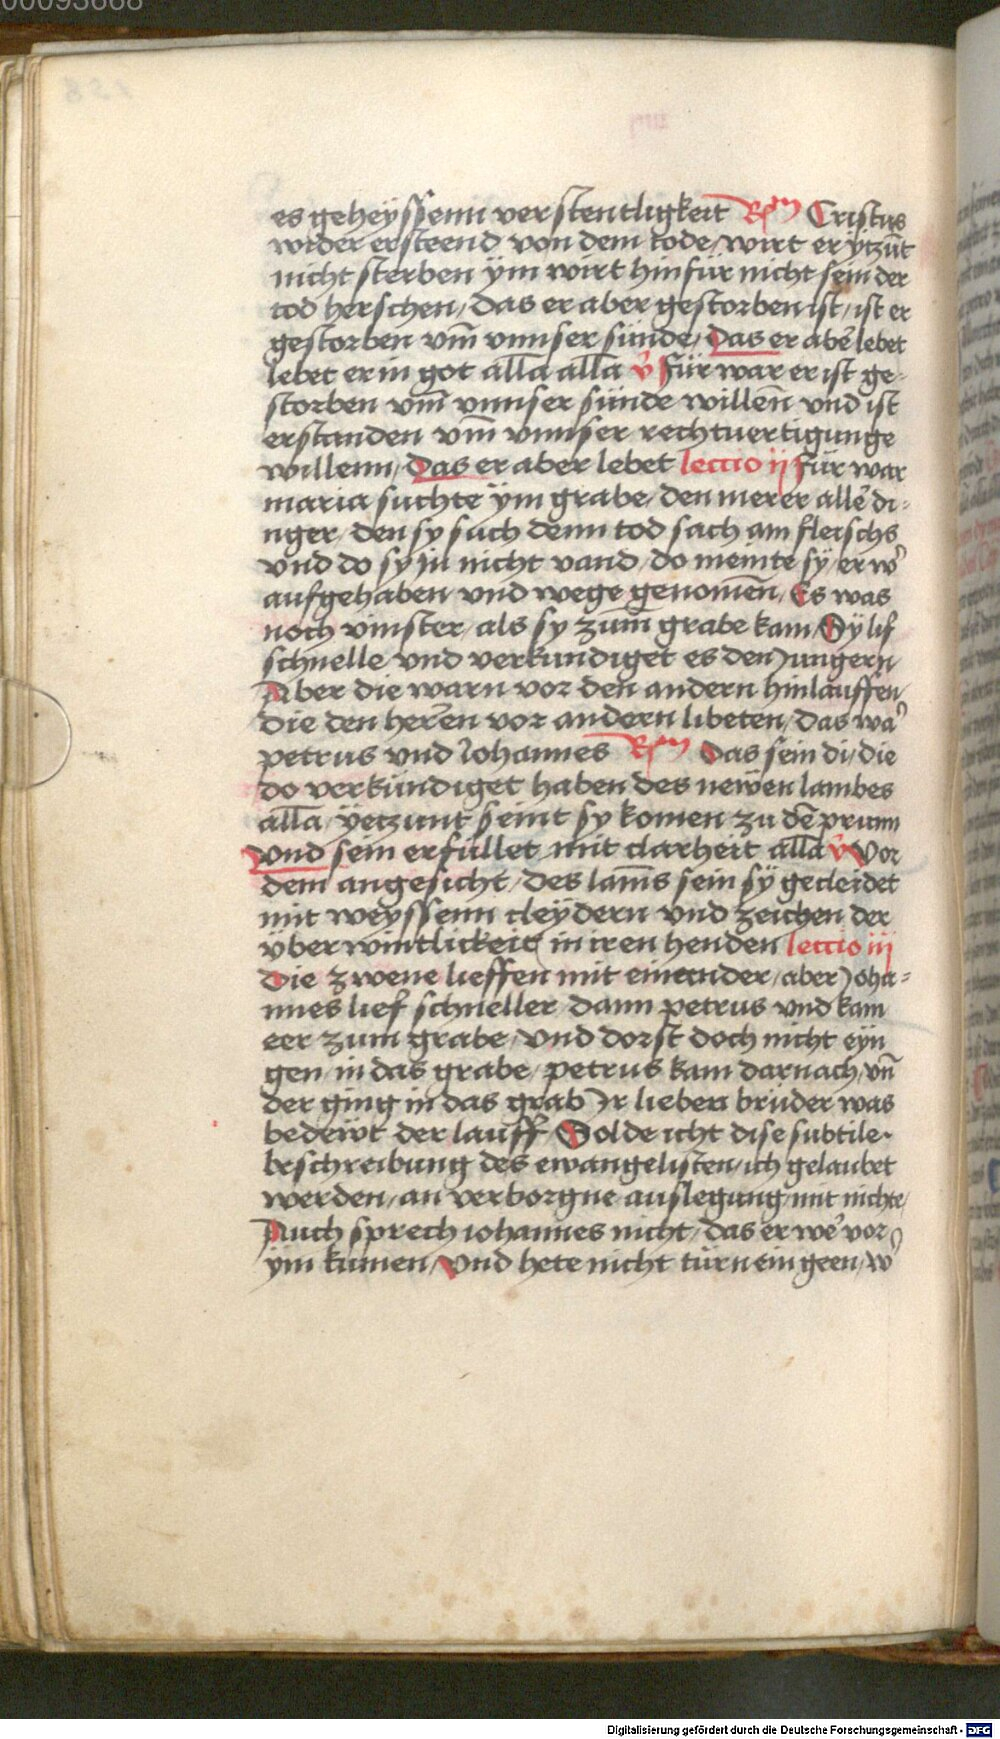 00093668
es geheyssenn verstentligkeit Rm̄ Cristus
wider ersteend von dem tode / wirt er ytzūt
nicht sterben ÿm wirt hinfür nicht sein der
tod herschen / das er aber gestorben ist / ist er
gestorben vm̄ vnnser sünde / Das er aber lebet
lebet er in got all̄a all̄a v̄ für war er ist ge-
storben vm̄ vnnser sünde willen̄ vnd ist
erstanden vm̄ vnnser rechtuertigunge
willenn / Das er aber lebet lectio ij für war
maria suchte ÿm grabe / den merer alle di-
nger / den sy such denn tod sach am fleischs
vnd do sy jn nicht vand / do meinte sÿ / er w̉
aufgehaben vnd wege genomen̄ / Es was
noch vinster / als sy zum̄ grabe kam / Sÿ lif
schnelle vnd verkundiget es den Jungern
Aber die warn vor den andern hinlauffen /
die den heren vor andern libeten / das wa̓
petrus vnd Johannes Rm̄ Das sein di / die
do verkündiget haben des newen lambes
all̄a / ÿetzunt seint sy komen zu dē prunn
vnd sein erfüllet mit clarheit all̄a v̄ Vor
dem angesicht / des lam̄s sein sÿ gecleidet
mit weyssenn cleÿdern vnd zeichen der
überwintlickeit in iren henden lectio iij
Die zwene lieffen mit einander / aber Joha-
nnes lief schneller dann petrus vnd kam
eer zum grabe / vnd dorst doch nicht eyn
gen / in das grabe / petrus kam darnach / vn̄
der ging in das grab Ir lieben brüder was
bedeiwt der lauff Solde icht dise subtile
beschreibung des ewangelisten / ich gelaubet
werden / an verborgne auslegung mit nichte /
Auch sprech iohannes nicht / das er we̓ vor
ÿm kumen / Vnd hete nicht türn ein geen / w̉
Digitalisierung gefördert durch die Deutsche Forschungsgemeinschaft - DFG